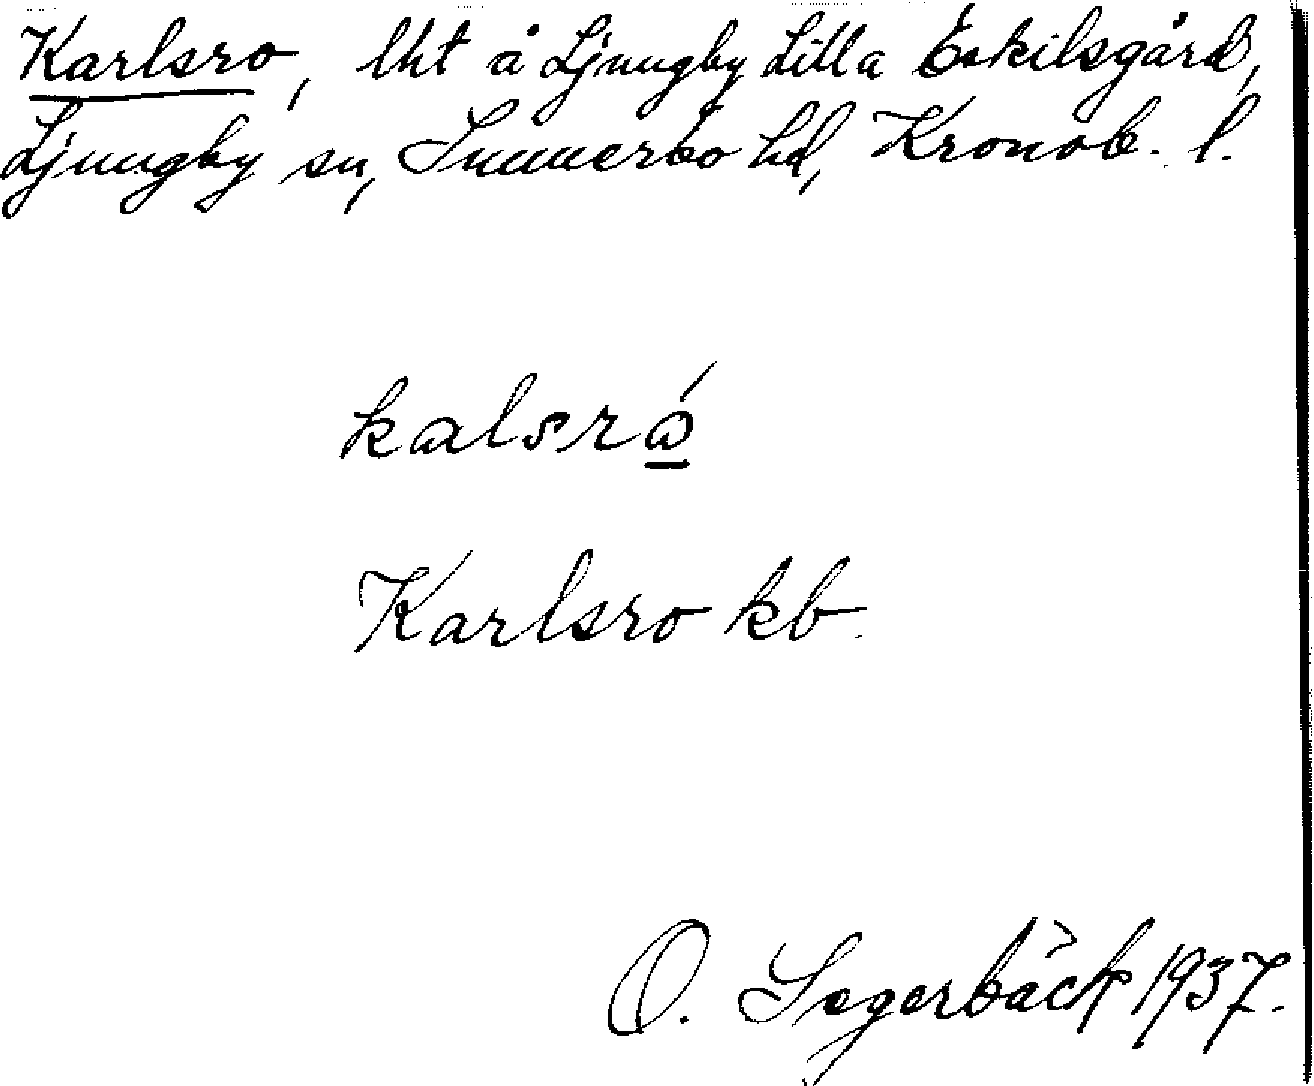 Karlsro, lht å Ljungby Lilla Eskilsgård,
Ljungby sn, Sunnerbo hd, Kronob. l.
kalsrό̲
Karlsro kb.
O. Segerbäck 1937.